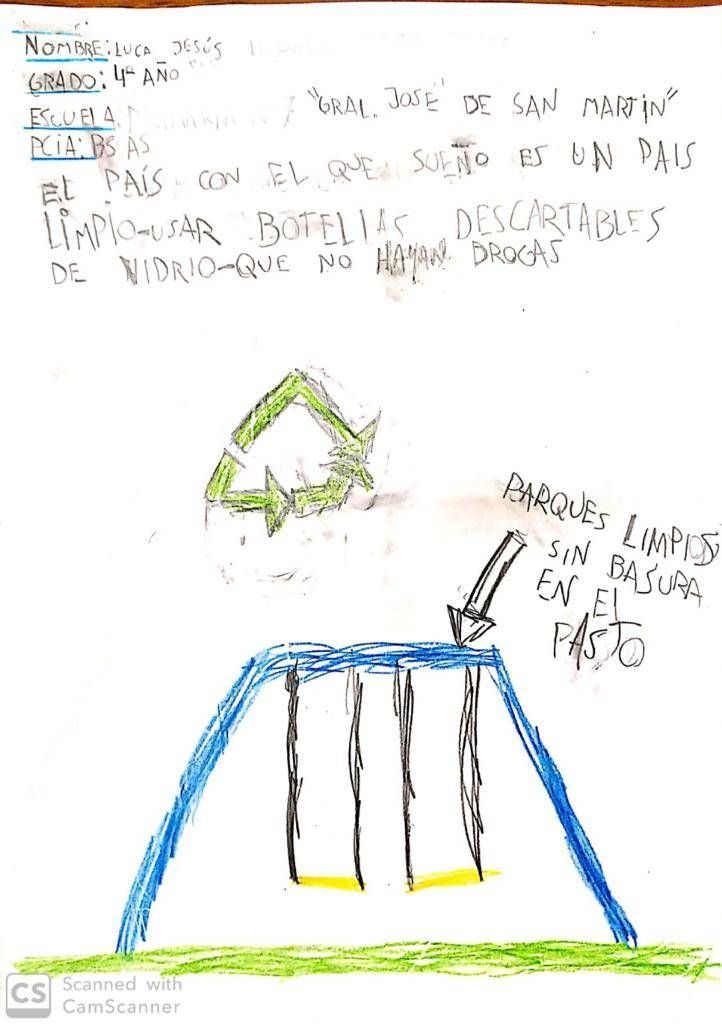 NOMBRE: LUCA JESÚS
GRADO: 4º AÑO
ESCUELA: "GRAL. JOSÉ DE SAN MARTIN"
PCIA: BS AS
EL PAÍS CON EL QUE SUEÑO ES UN PAIS
LIMPIO-USAR BOTELLAS DESCARTABLES
DE VIDRIO-QUE NO HAYAN DROGAS
PARQUES LIMPIOS
SIN BASURA
EN El
PASTO
CS Scanned with
CamScanner